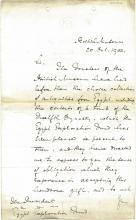 British Museum
20 Oct. 1902.
Sir,
The Trustees of the
British Museum have had
before them the choice collection
of antiquities from Egypt, including
the contents of a tomb of the
Twelfth Dynasty, which the
Egypt Exploration Fund has
been pleased to present to
them, and they have directed
me to express to you the sense
of obligation which they
experience in accepting this
handsome gift, and to ask
The President
Egypt Exploration Fund